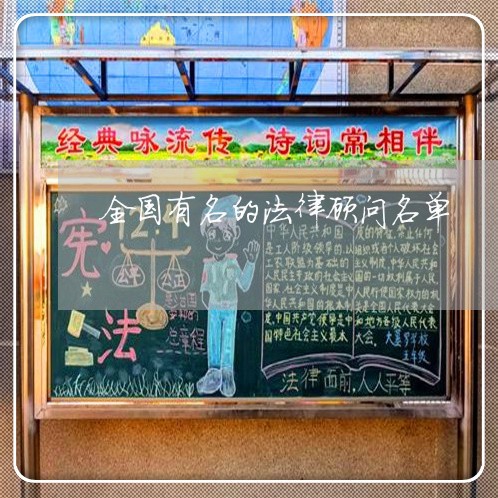 经典咏流传 诗词常相伴
全国有名的法律顾问名单
12.4
宪法
公平
公正
爱我国的
总章程
中华人民共和国
是工人阶级领导的,以
工农联盟为基础的
人民民主专政的社会主义
国家,社会主义制度是中
华人民共和国的根本制
度,中国共产党领导是中
国特色社会主义最本
质的特征,禁止任何
组织或者个人破坏社会
主义制度,中华人民共和
国的一切权利属于人民,
人民行使国家权力的机
关是全国人民代表大会
和地方各级人民代表
大会。
五年级
法律面前,人人平等